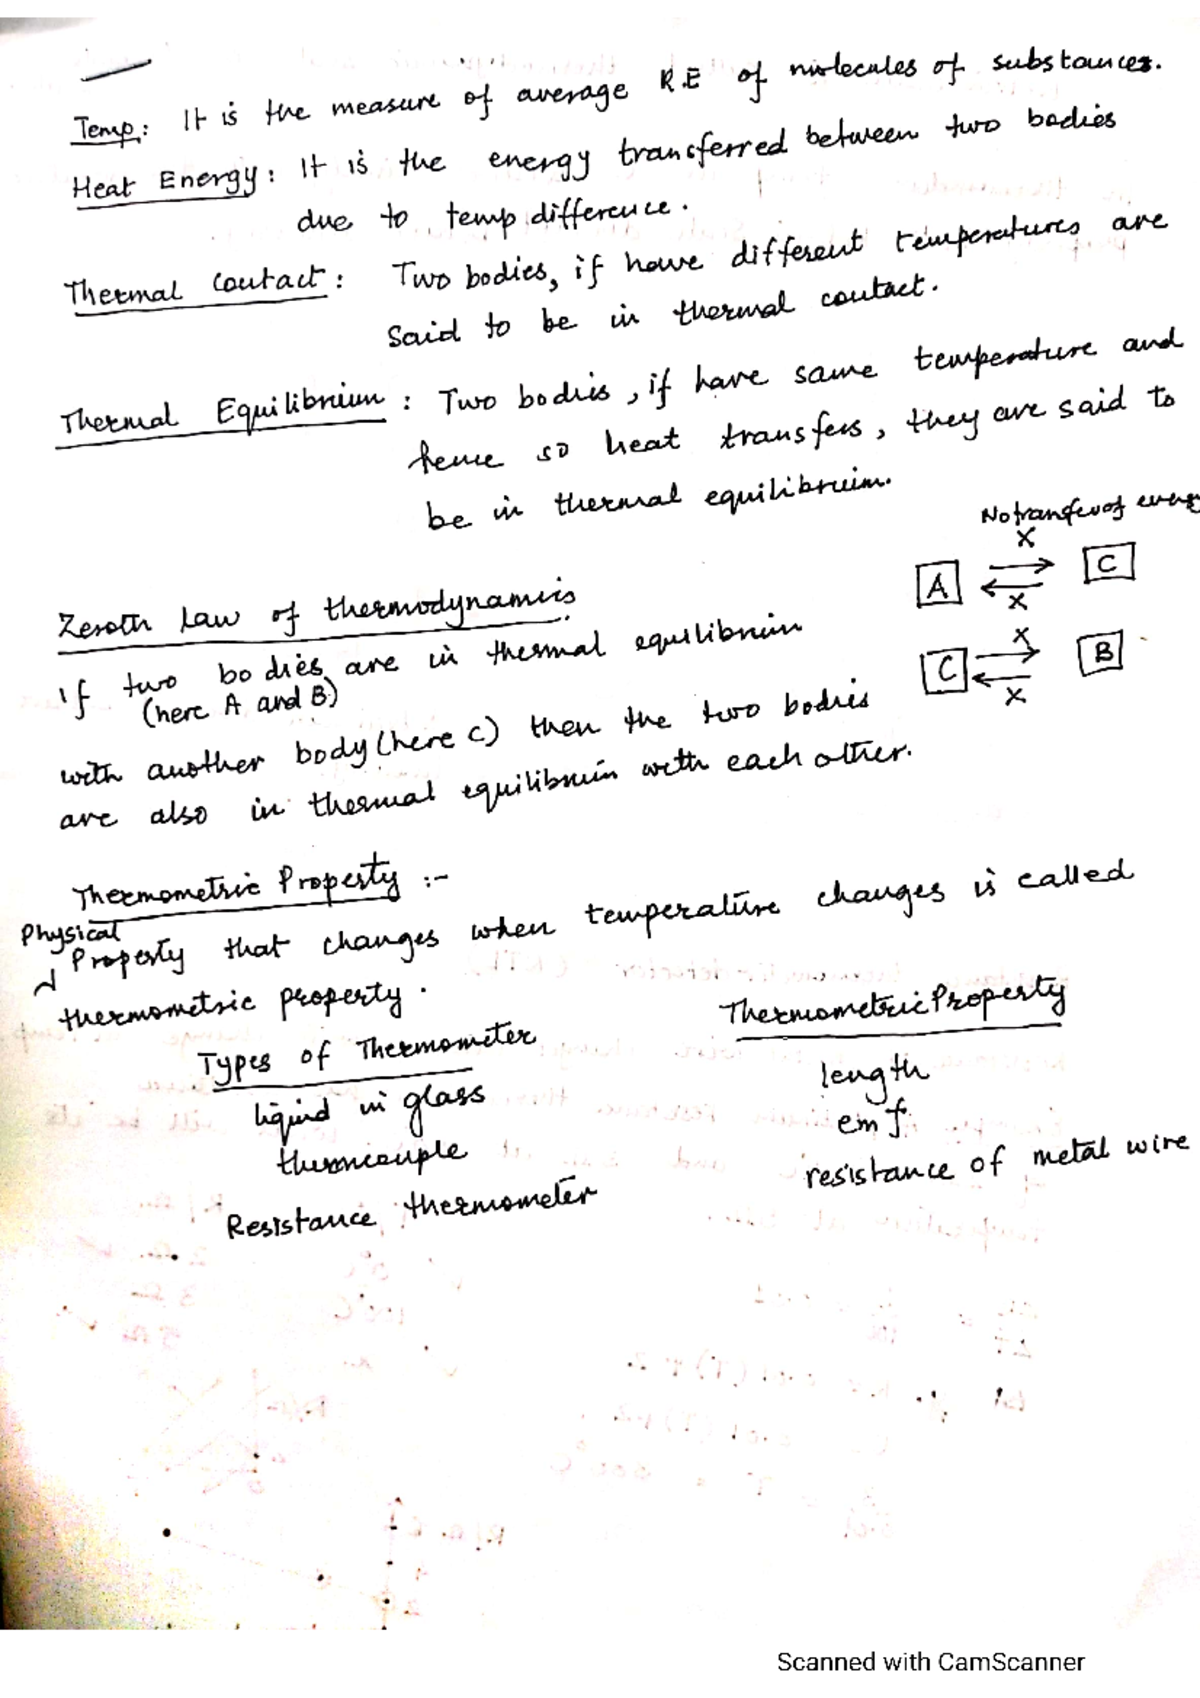 Temp: It is the measure of average K.E of molecules of substances.
Heat Energy: It is the energy transferred between two bodies
due to temp difference.
Thermal Contact: Two bodies, if have different temperatures are
said to be in thermal contact.
Thermal Equilibrium: Two bodies, if have same temperature and
hence so heat transfers, they are said to
be in thermal equilibrium.
No transfer of energy
X
A C
X
Zeroth Law of thermodynamics
X
C B
X
If two bodies are in thermal equilibrium
(here A and B)
with another body (here C) then the two bodies
are also in thermal equilibrium with each other.
Thermometric Property :-
Physical
Property that changes when temperature changes is called
thermometric property.
Types of Thermometer Thermometric Property
liquid in glass length
thermocouple emf
Resistance thermometer resistance of metal wire
Scanned with CamScanner